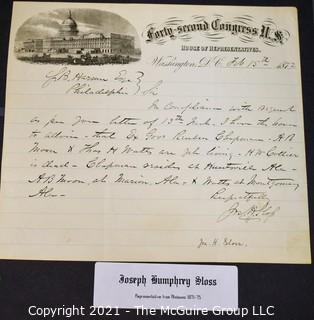 Forty-second Congress U.S.
House of Representatives.
Washington, D.C. Feb 15th 1872
Philadelphia Sir
In compliance with request
as per your letter of 13th Inst. I have the honor
to advise - that Ex Govs Reuben Chapman - A B
Moore & Thos H Watts are yet living - H W Collier
is dead - Chapman resides at Huntsville Ala -
A B Moore, at Marion, Ala - & Watts at Montgomery
Ala -
Respectfully
Jos. H. Sloss
Jos. H. Sloss.
Joseph Humphrey Sloss
Representative from Alabama 1871-75
Copyright © 2021 - The McGuire Group LLC